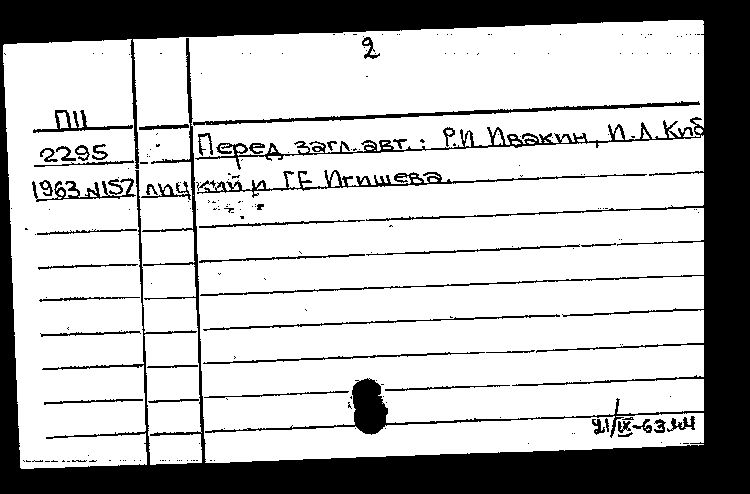 2
П11
2295 Перед загл. авт.: Р.И. Ивакин, И.Л. Киб
1963 №157 лицкий и Г.Е. Игишева.
21/IX-63 мм